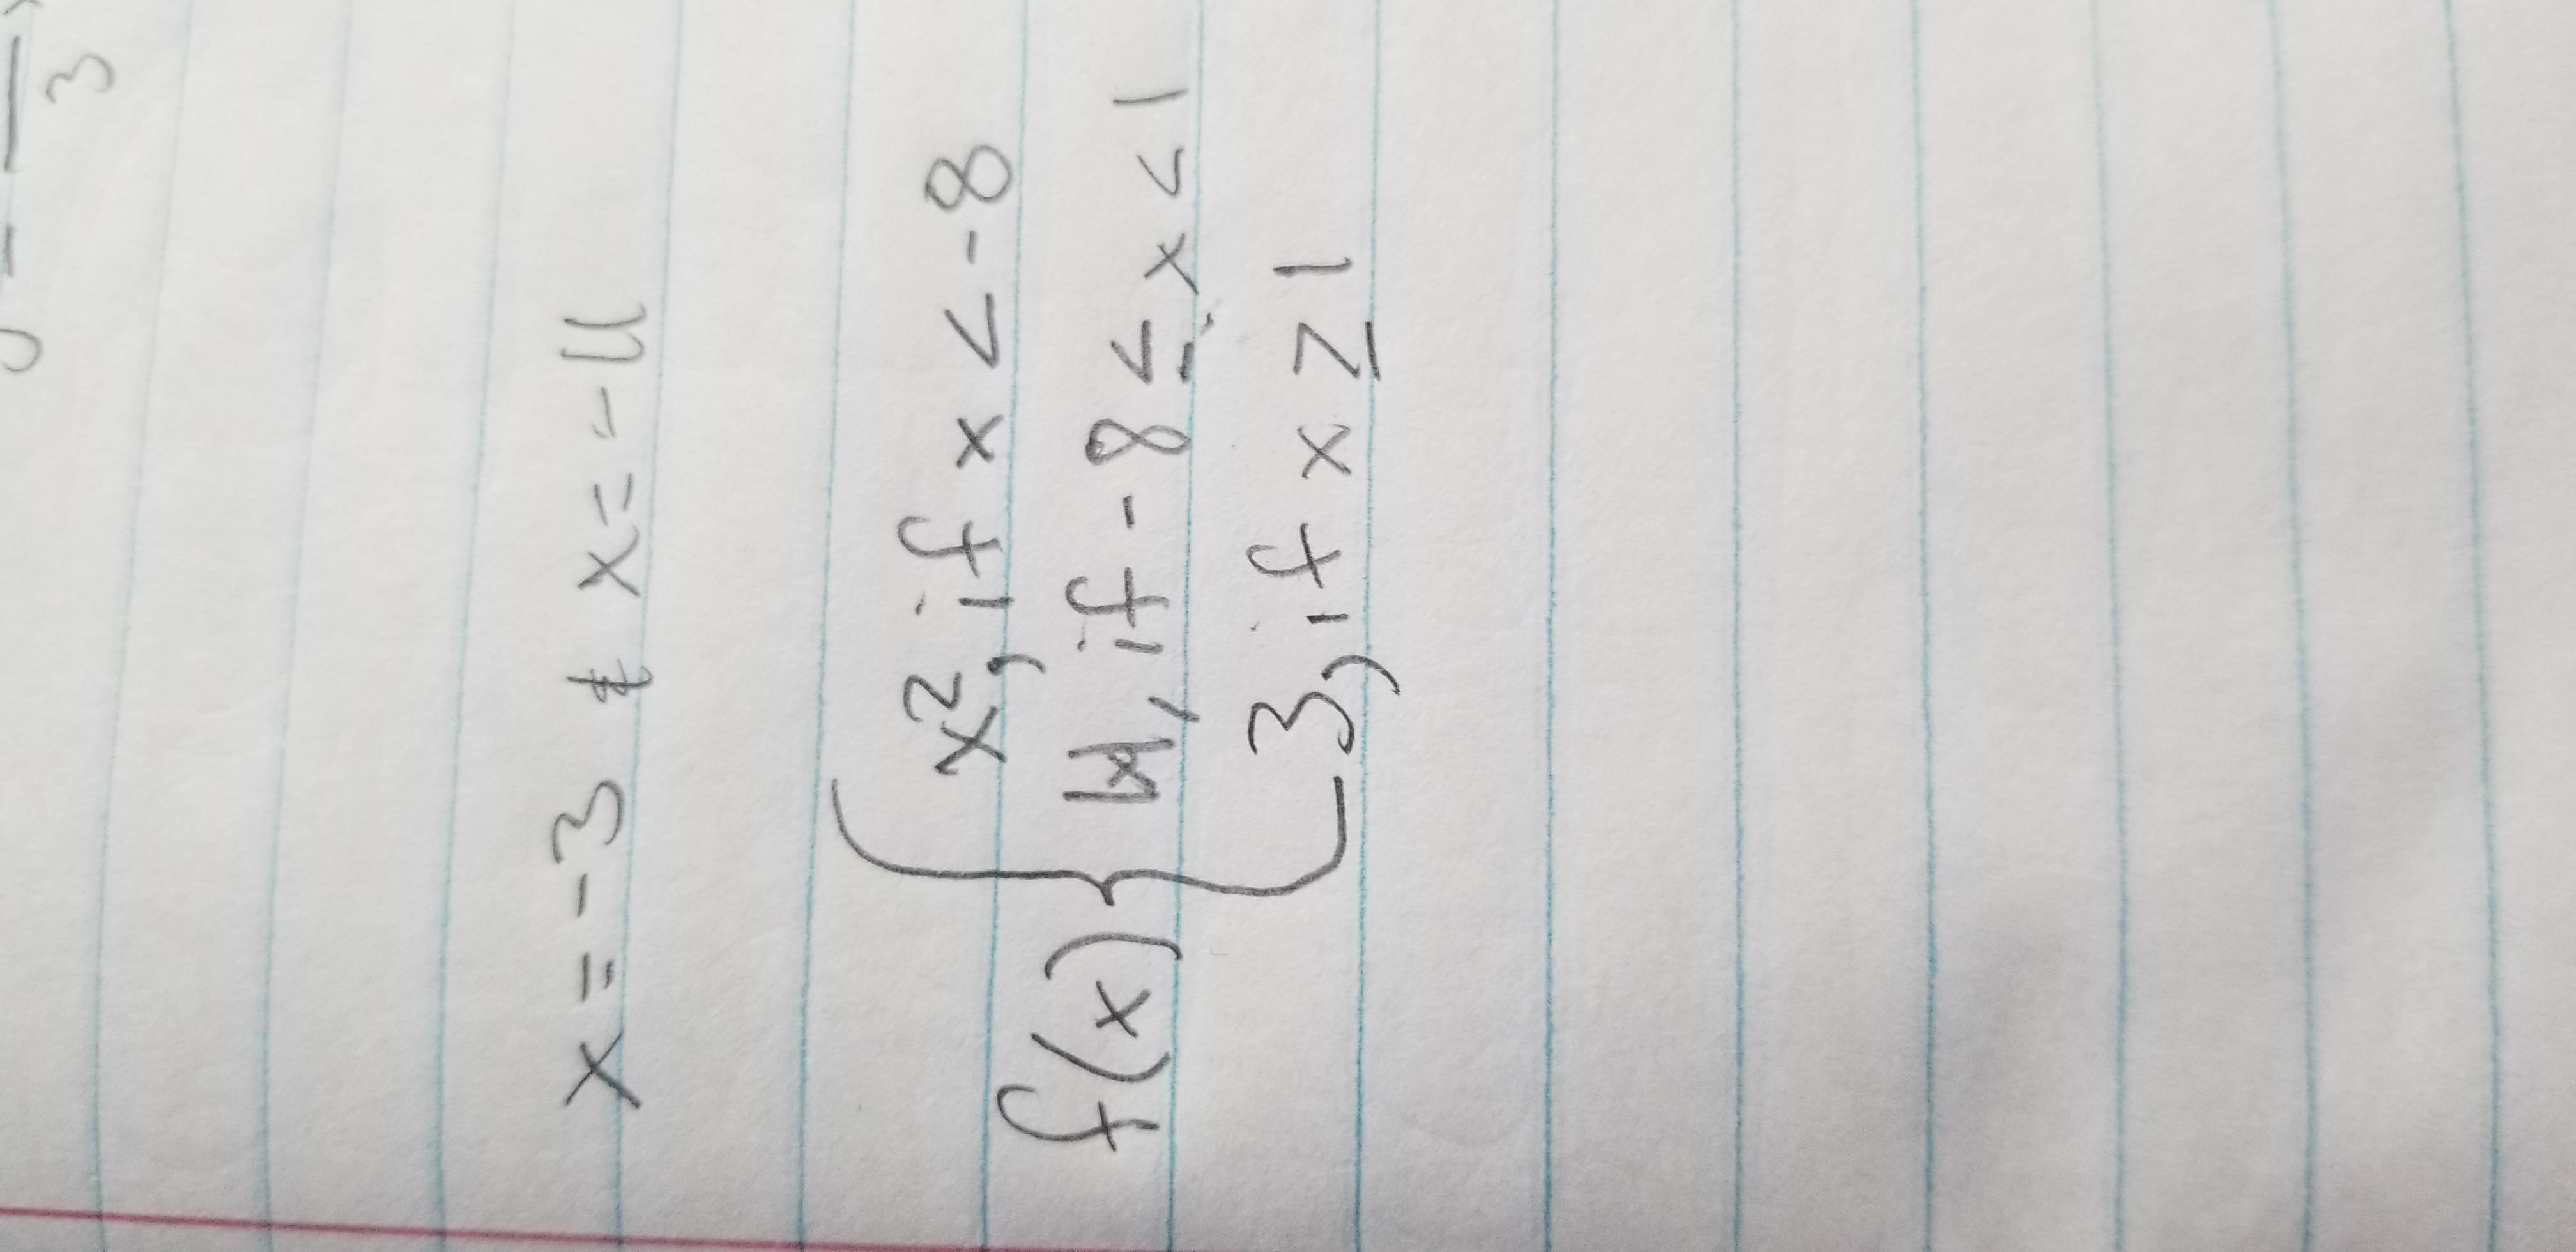 x = -3 & x = -11
f(x) { x², if x < -8
|x|, if -8 ≤ x < 1
3, if x ≥ 1